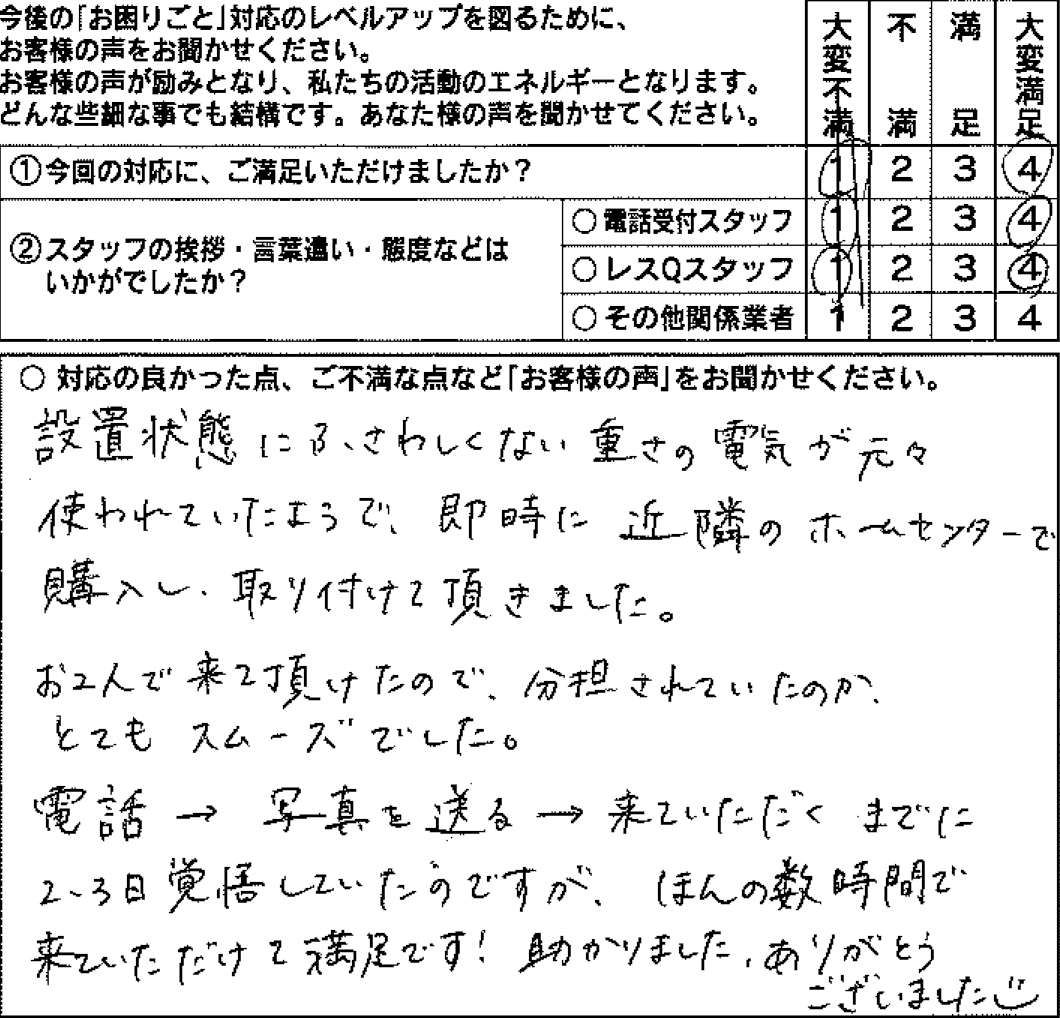 今後の「お困りごと」対応のレベルアップを図るために、
お客様の声をお聞かせください。
お客様の声が励みとなり、私たちの活動のエネルギーとなります。
どんな些細な事でも結構です。あなた様の声を聞かせてください。
大変不満 不満 満足 大変満足
①今回の対応に、ご満足いただけましたか? 1 2 3 4
②スタッフの挨拶・言葉遣い・態度などは
いかがでしたか?
○電話受付スタッフ 1 2 3 4
○レスQスタッフ 1 2 3 4
○その他関係業者 1 2 3 4
○ 対応の良かった点、ご不満な点など「お客様の声」をお聞かせください。
設置状態にふさわしくない重さの電気が元々
使われていたようで、即時に近隣のホームセンターで
購入し、取り付けて頂きました。
お2人で来て頂けたので、分担されていたのか、
とてもスムーズでした。
電話→写真を送る→来ていただくまでに
2、3日覚悟していたのですが、ほんの数時間で
来ていただけて満足です!助かりました、ありがとう
ございました